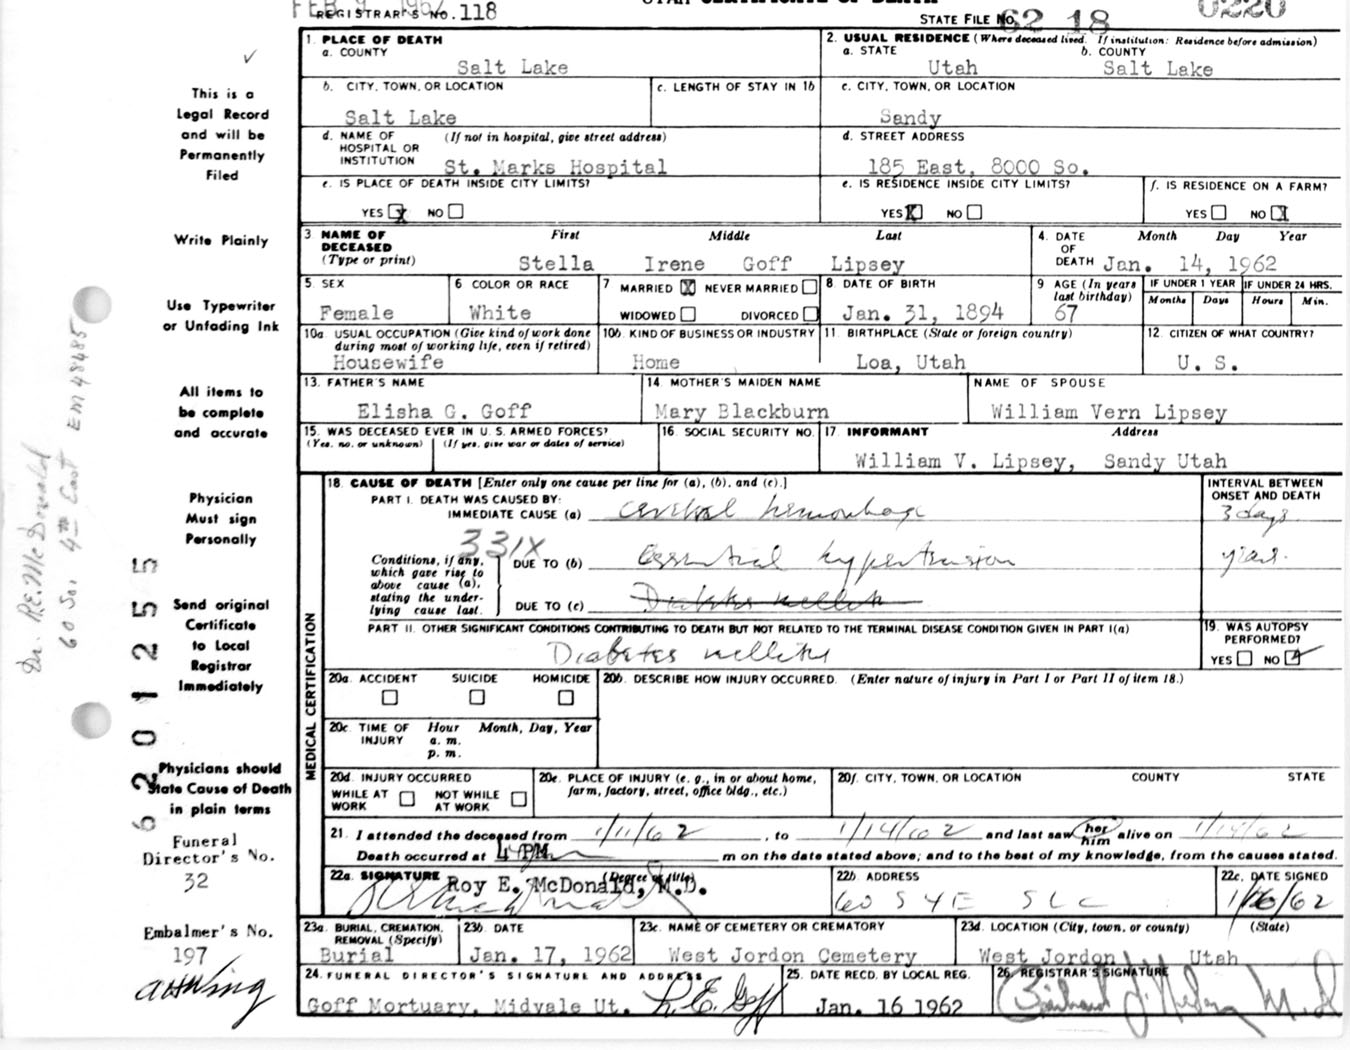 FEB 9 1962
REGISTRAR'S NO. 118
STATE FILE NO. 62 18 0220
1. PLACE OF DEATH
a. COUNTY
Salt Lake
2. USUAL RESIDENCE (Where deceased lived. If institution: Residence before admission)
a. STATE b. COUNTY
Utah Salt Lake
b. CITY, TOWN, OR LOCATION
Salt Lake
c. LENGTH OF STAY IN 1b
c. CITY, TOWN, OR LOCATION
Sandy
d. NAME OF HOSPITAL OR INSTITUTION (If not in hospital, give street address)
St. Marks Hospital
d. STREET ADDRESS
185 East, 8000 So.
e. IS PLACE OF DEATH INSIDE CITY LIMITS?
YES X NO
e. IS RESIDENCE INSIDE CITY LIMITS?
YES X NO
f. IS RESIDENCE ON A FARM?
YES NO X
3 NAME OF DECEASED (Type or print)
First Middle Last
Stella Irene Goff Lipsey
4. DATE OF DEATH Month Day Year
Jan. 14, 1962
5. SEX
Female
6 COLOR OR RACE
White
7 MARRIED X NEVER MARRIED
WIDOWED DIVORCED
8. DATE OF BIRTH
Jan. 31, 1894
9 AGE (In years last birthday)
67
IF UNDER 1 YEAR IF UNDER 24 HRS.
Months Days Hours Min.
10a USUAL OCCUPATION (Give kind of work done during most of working life, even if retired)
Housewife
10b. KIND OF BUSINESS OR INDUSTRY
Home
11 BIRTHPLACE (State or foreign country)
Loa, Utah
12. CITIZEN OF WHAT COUNTRY?
U. S.
13. FATHER'S NAME
Elisha G. Goff
14. MOTHER'S MAIDEN NAME
Mary Blackburn
NAME OF SPOUSE
William Vern Lipsey
15. WAS DECEASED EVER IN U. S. ARMED FORCES?
(Yes, no, or unknown) (If yes, give war or dates of service)
16. SOCIAL SECURITY NO.
17. INFORMANT Address
William V. Lipsey, Sandy Utah
MEDICAL CERTIFICATION
18. CAUSE OF DEATH [Enter only one cause per line for (a), (b), and (c).]
INTERVAL BETWEEN ONSET AND DEATH
PART I. DEATH WAS CAUSED BY:
IMMEDIATE CAUSE (a) cerebral hemorrhage 3 days
331X
Conditions, if any, which gave rise to above cause (a), stating the underlying cause last.
DUE TO (b) essential hypertension years.
DUE TO (c) Diabetes mellitus
PART II. OTHER SIGNIFICANT CONDITIONS CONTRIBUTING TO DEATH BUT NOT RELATED TO THE TERMINAL DISEASE CONDITION GIVEN IN PART I(a)
Diabetes mellitus
19. WAS AUTOPSY PERFORMED?
YES NO
20a. ACCIDENT SUICIDE HOMICIDE
20b. DESCRIBE HOW INJURY OCCURRED. (Enter nature of injury in Part I or Part II of item 18.)
20c. TIME OF INJURY Hour Month, Day, Year
a. m.
p. m.
20d. INJURY OCCURRED
WHILE AT WORK NOT WHILE AT WORK
20e. PLACE OF INJURY (e. g., in or about home, farm, factory, street, office bldg., etc.)
20f. CITY, TOWN, OR LOCATION COUNTY STATE
21. I attended the deceased from 1/11/62, to 1/14/62 and last saw her him alive on 1/14/62
Death occurred at 4 PM m on the date stated above; and to the best of my knowledge, from the causes stated.
22a. SIGNATURE (Degree or title)
Roy E. McDonald, M.D.
22b. ADDRESS
60 S 4 E SLC
22c. DATE SIGNED
1/16/62
23a. BURIAL, CREMATION, REMOVAL (Specify)
Burial
23b. DATE
Jan. 17, 1962
23c. NAME OF CEMETERY OR CREMATORY
West Jordon Cemetery
23d. LOCATION (City, town, or county) (State)
West Jordon Utah
24. FUNERAL DIRECTOR'S SIGNATURE AND ADDRESS
Goff Mortuary, Midvale Ut. L. E. Goff
25. DATE RECD. BY LOCAL REG.
Jan. 16 1962
26. REGISTRAR'S SIGNATURE
M. D.
This is a
Legal Record
and will be
Permanently
Filed
Write Plainly
Use Typewriter
or Unfading Ink
All items to
be complete
and accurate
Physician
Must sign
Personally
Send original
Certificate
to Local
Registrar
Immediately
Physicians should
State Cause of Death
in plain terms
Funeral
Director's No.
32
Embalmer's No.
197
6201255
Dr. R.E. McDonald
60 So. 4th East EM 48485